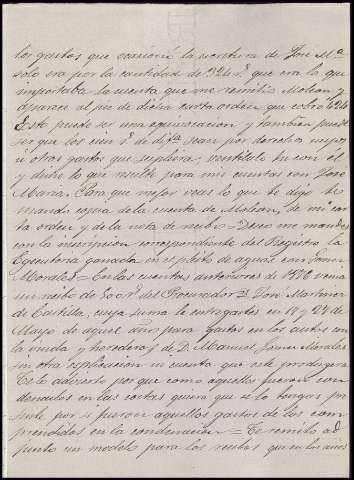 los gastos que ocasionó la escritura de José Mª
solo era por la cantidad de 324 rs. que era lo que
importaba la cuenta que me remitió Molian, y
aparece al pie de dicha carta orden que cobró 424
Esto puede ser una equivocacion y tambien puede
ser que los cien rs. de difª sean por derechos
ú otros gastos que supliera, ventílelo tu con él
y dime lo que resulte para mis cuentas con José
Maria. Para que mejor veas lo que te digo te
mando copia de la cuenta de Molian, de mi car
ta orden y de la nota de recibo = Deseo me mandes
con la inscripcion correspondiente del Registro la
Egecutoria ganada en el pleito de aguas con Jaime
Morales = En las cuentas anteriores de 1876 venia
un recibo de 300 rs. del Procurador D. José Martinez
de Castilla, cuya suma le entregastes en 19 y 24 de
Mayo de aquel año para gastos en los autos con
la viuda y herederos de D. Manuel Jaime Morales
sin otra esplicacion ni cuenta que este produgera
Te lo advierto por que como aquellos fueron con
denados en las costas quiero que lo tengas pre
sente por si fueron aquellos gastos de los com
prendidos en la condenacion = Te remito ad
junto un modelo para los recibos que en los años